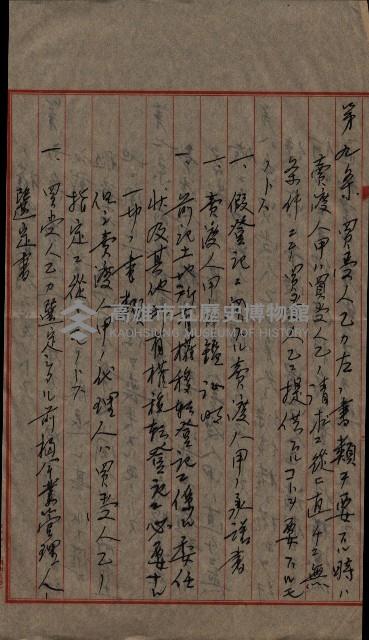 第九条 買受人乙カ左ノ書類ヲ要スル時ハ
賣渡人甲ハ買受人乙ノ請求ニ從ヒ直チニ無
条件ニテ買受人乙ニ提供スルコトヲ要スルモ
ノトス
一、假登記ニ関スル賣渡人甲ノ承諾書
一、賣渡人甲ノ印鑑証明
一、前記土地所有權移轉登記ニ係ル委任
状及其他所有權移轉登記ニ必要ナル
一切ノ書類
但シ賣渡人甲ノ代理人ハ買受人乙ノ
指定ニ從フモノトス
一、買受人乙カ選定シタル前項作業管理人ノ
選定書
高雄市立歷史博物館
KAOHSIUNG MUSEUM OF HISTORY